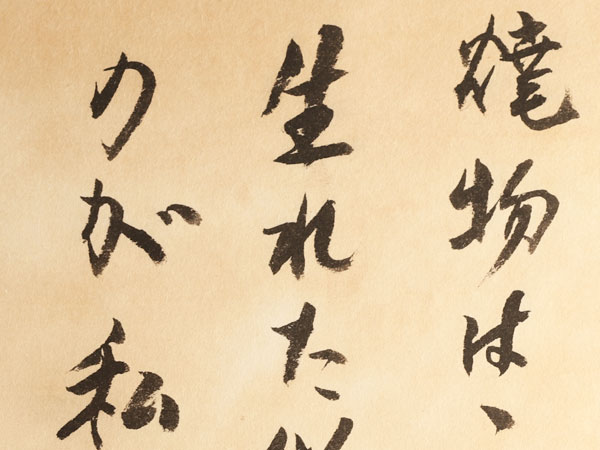 焼物は、
生れた
のが私